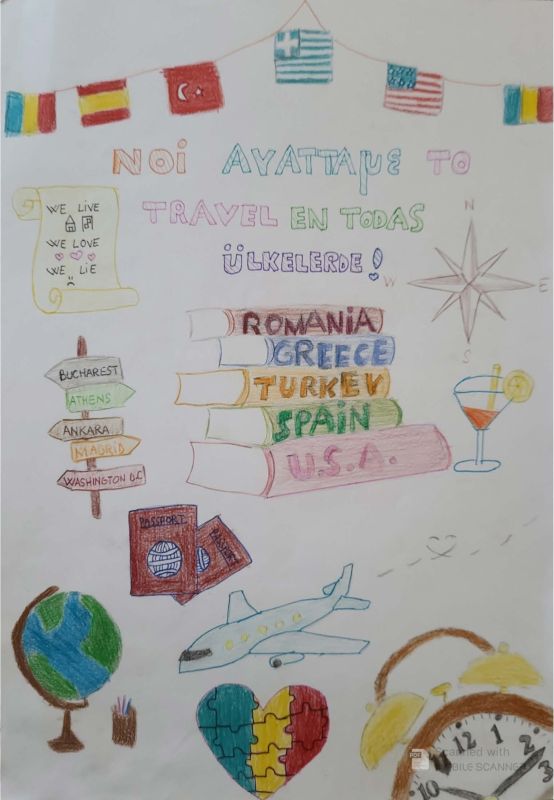 NOI AYATTAμE TO
TRAVEL EN TODAS
ÜLKELERDE!
WE LIVE
WE LOVE
WE LIE
N
W E
S
ROMANIA
GREECE
TURKEY
SPAIN
U.S.A.
BUCHAREST
ATHENS
ANKARA
MADRID
WASHINGTON D.C
PASSPORT
PASSPORT
10 11 12 1 2 3
Scanned with
MOBILE SCANNER